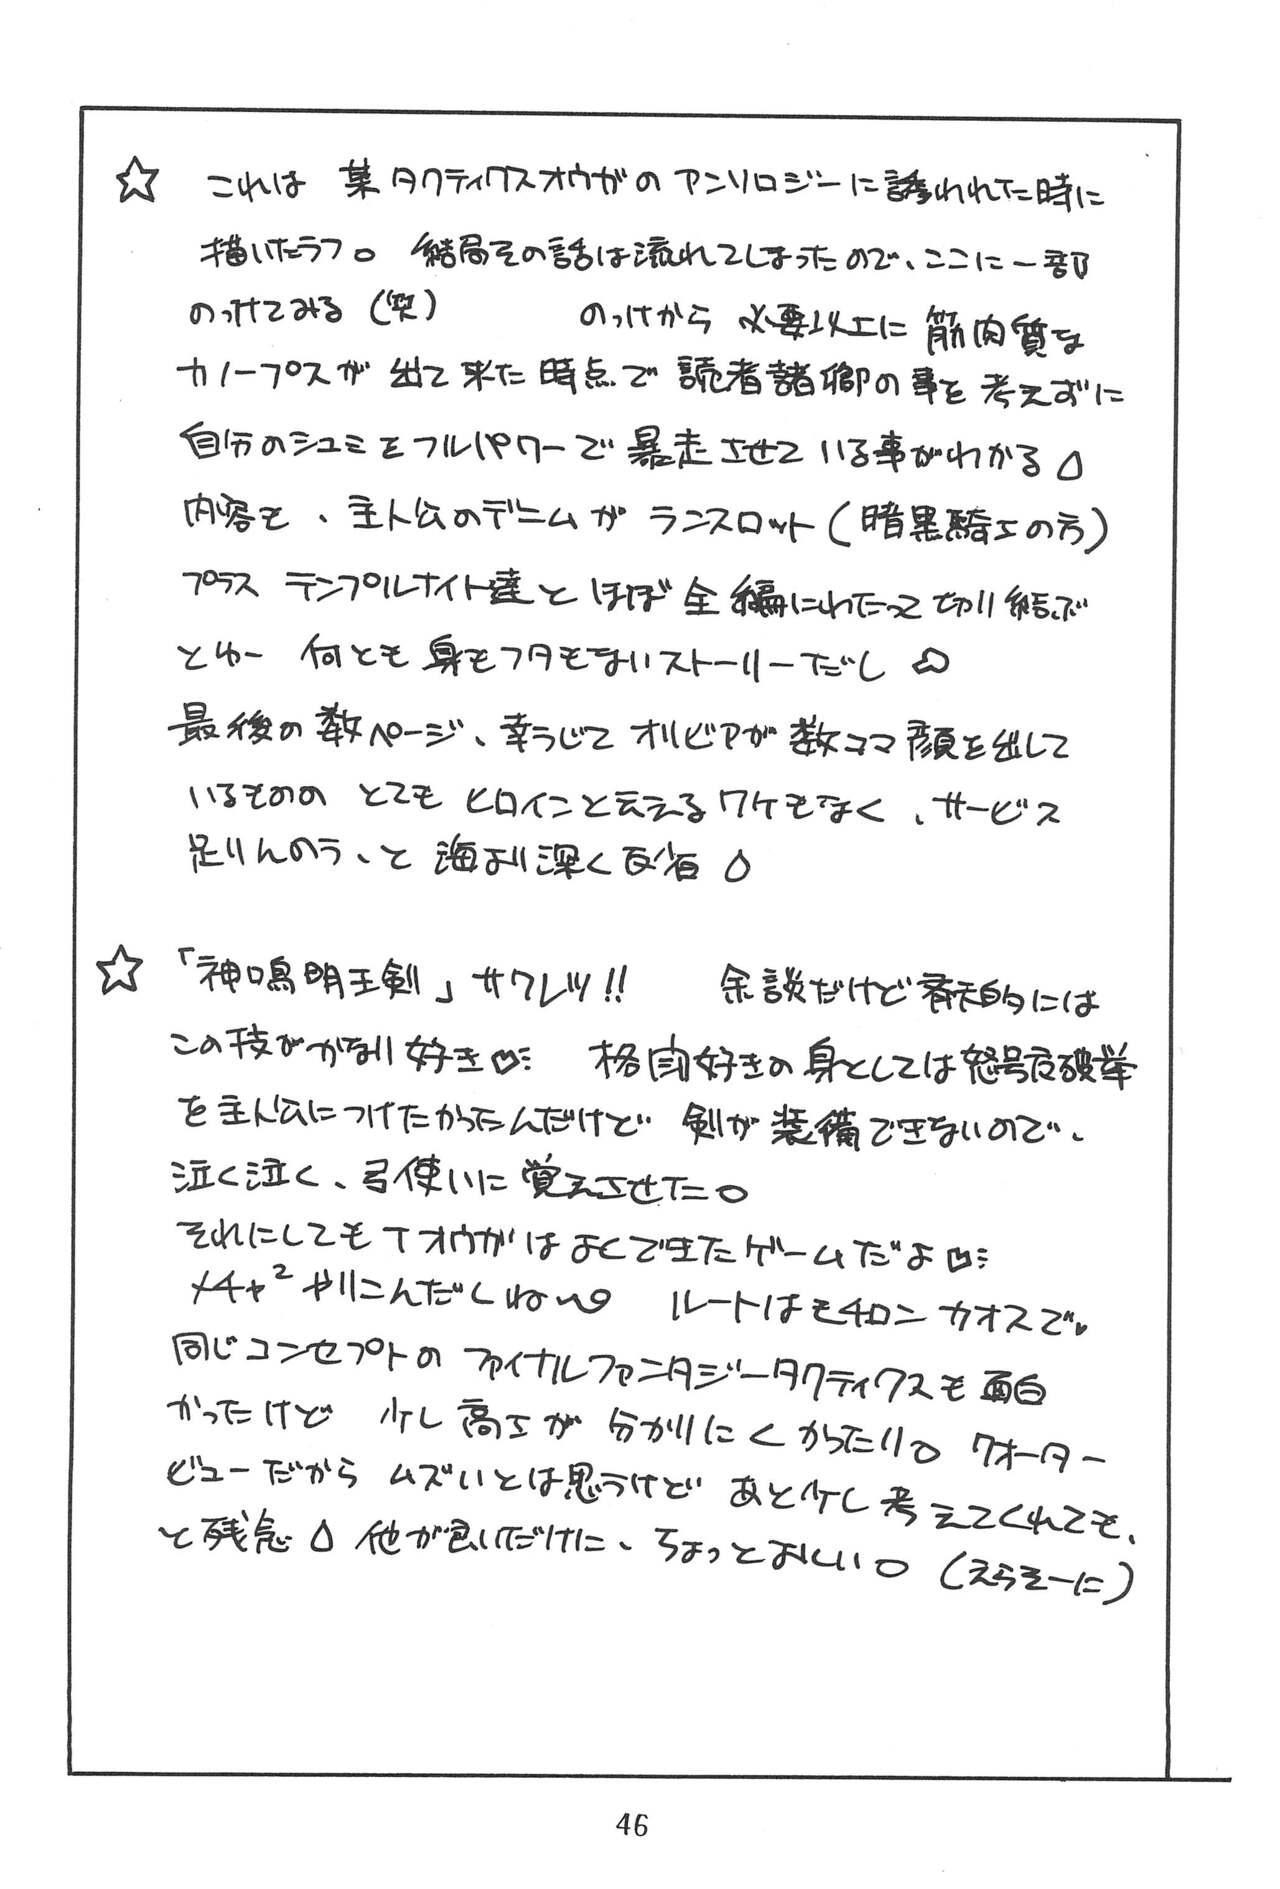 ☆ これは 某タクティクスオウガの アンソロジーに誘われた時に
描いたラフ。 結局その話は流れてしまったので、ここに一部
のっけてみる(笑) のっけから 必要以上に 筋肉質な
カノープスが 出て来た時点で 読者諸卿の事を 考えずに
自分のシュミをフルパワーで 暴走させている事がわかる
内容も、主人公のデニムが ランスロット(暗黒騎士の方)
プラス テンプルナイト達と ほぼ全編にわたって切り結ぶ
とゆー 何とも身もフタもないストーリーだし
最後の数ページ、辛うじて オリビアが数コマ 顔を出して
いるものの とてもヒロインと云えるワケもなく、サービス
足りんのう、と 海より深く反省
☆ 「神鳴明王剣」サクレツ!! 余談だけど 個人的には
この技が かなり好き♡ 格闘好きの身としては怒号
を主人公につけたかったんだけど 剣が装備できないので、
泣く泣く、弓使いに 覚えさせた。
それにしても Tオウガは よくできたゲームだよ♡
メチャ² やりこんだしね〜 ルートはモチロン カオスで♥
同じコンセプトの ファイナルファンタジータクティクスも 面白
かったけど 少し高さが 分かりにくかったり。 クオーター
ビューだから ムズいとは思うけど あと少し考えてくれても、
と残念 他が良いだけに、ちょっとおしい。 (えらそーに)
46